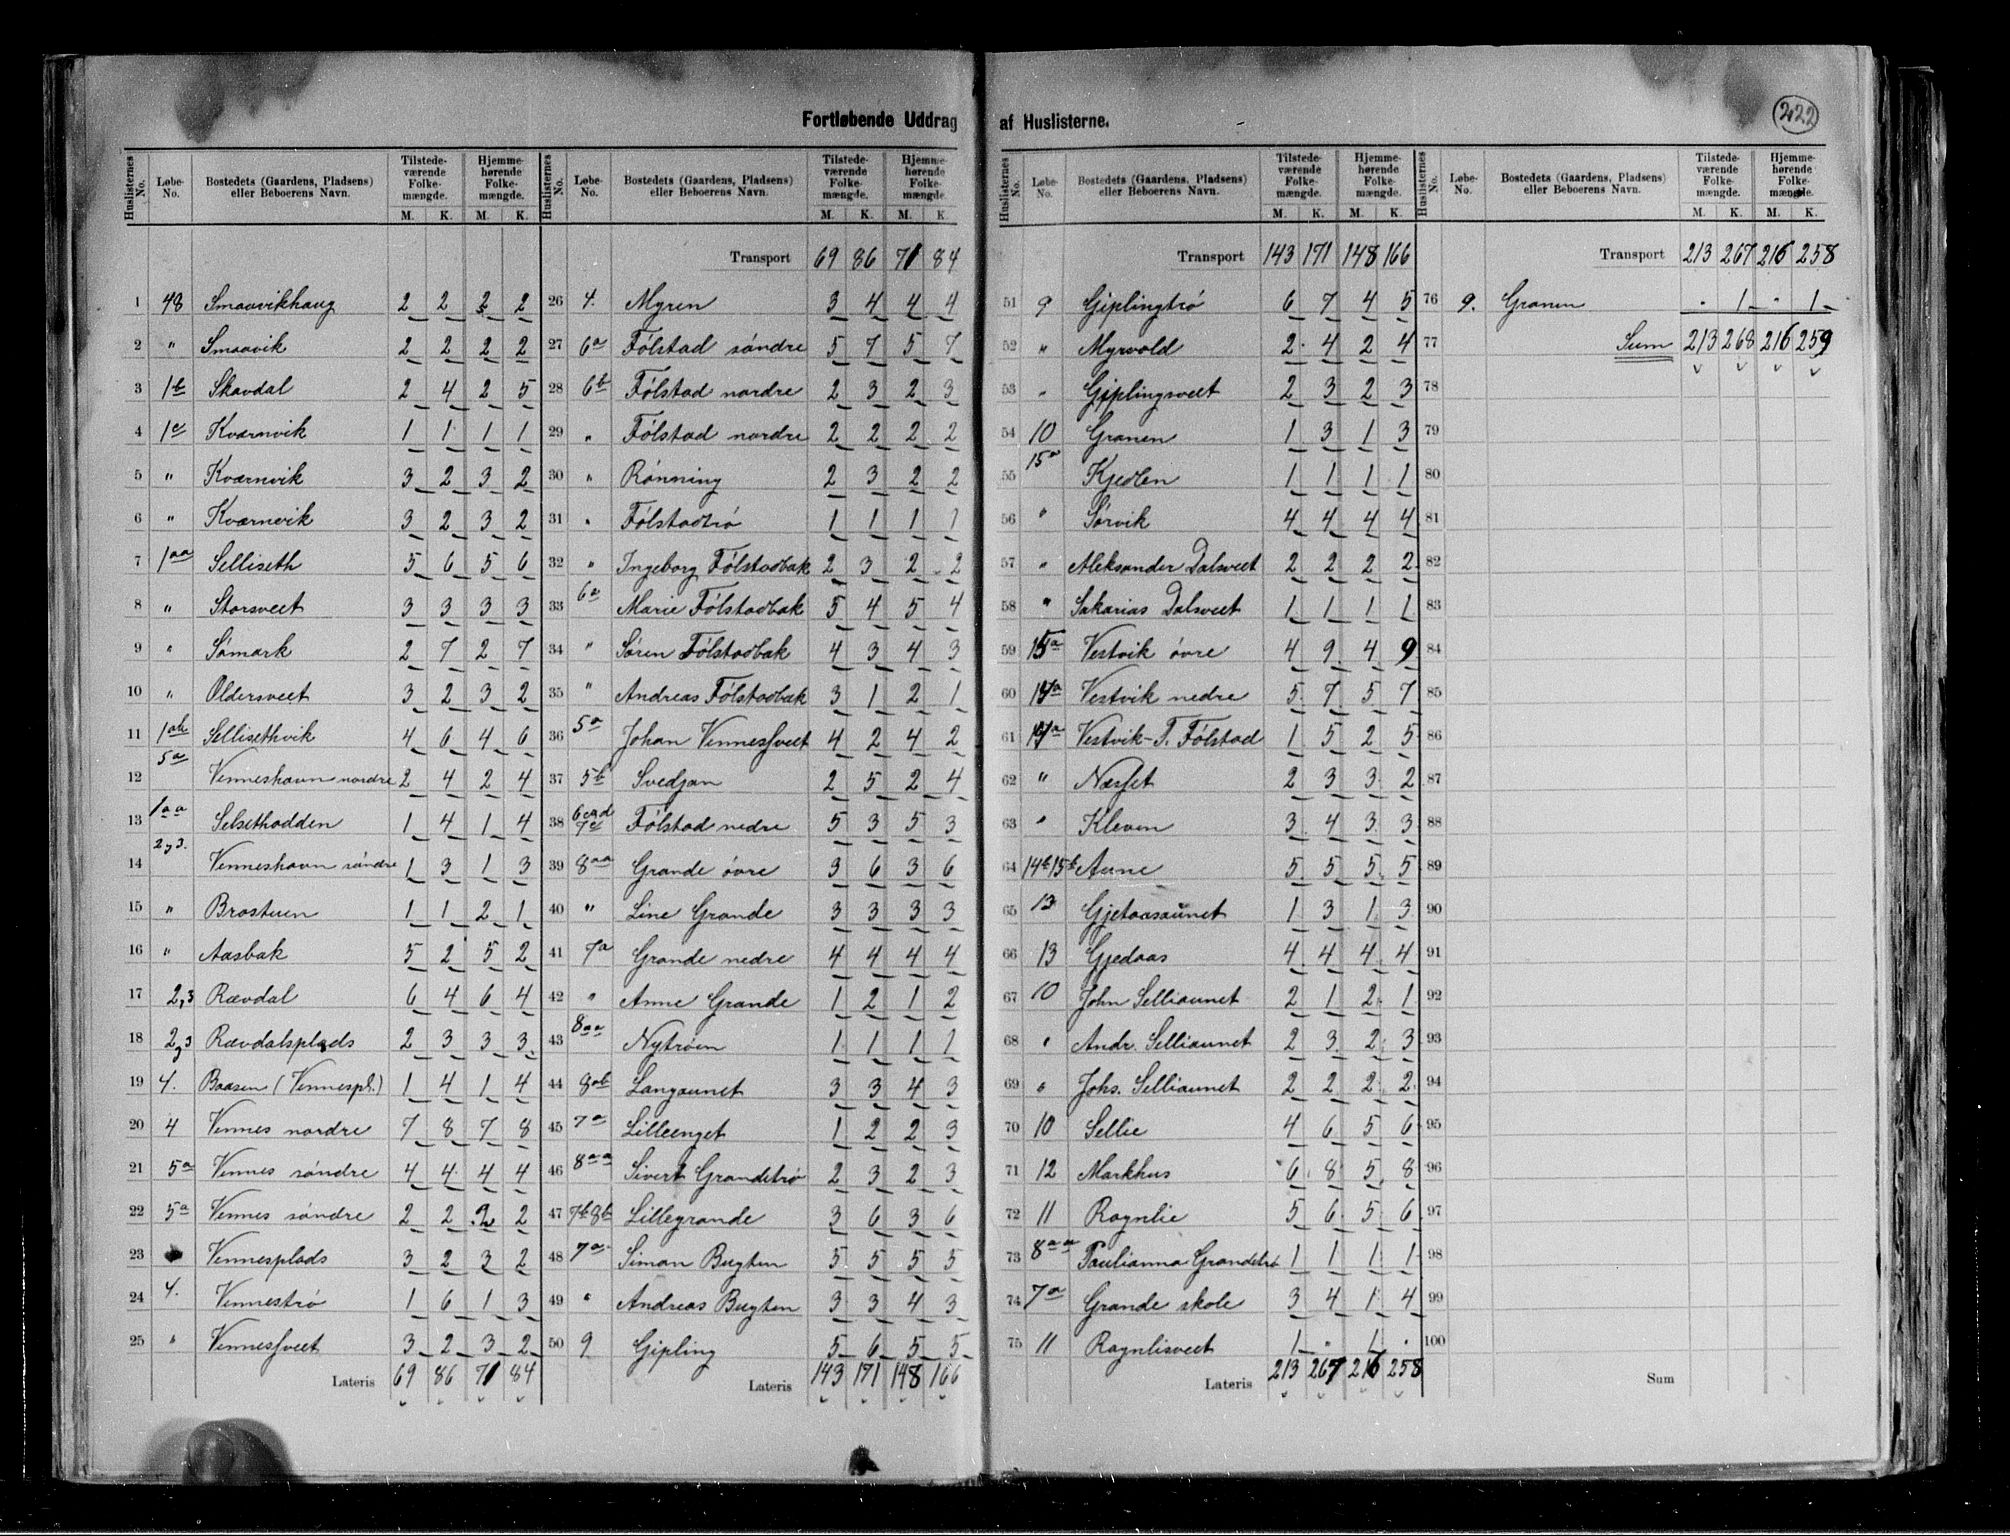 Fortløbende Uddrag af Huslisterne.
422
Huslisternes No. Løbe-No. Bostedets (Gaardens, Pladsens) eller Beboerens Navn. Tilstedeværende Folkemængde. M. K. Hjemmehørende Folkemængde. M. K.
1 48 Smaavikhaug 2 2 2 2
2 " Smaavik 2 2 2 2
3 1b Skavdal 2 4 2 5
4 1c Kværnvik 1 1 1 1
5 " Kværnvik 3 2 3 2
6 " Kværnvik 3 2 3 2
7 1aa Selliseth 5 6 5 6
8 " Storsveet 3 3 3 3
9 " Sømark 2 7 2 7
10 " Oldersveet 3 2 3 2
11 1ab Sellisethvik 4 6 4 6
12 5a Venneshavn nordre 2 4 2 4
13 1aa Selsethodden 1 4 1 4
14 2,3. Venneshavn søndre 1 3 1 3
15 " Brostuen 1 1 2 1
16 " Aasbak 5 2 5 2
17 2,3 Rævdal 6 4 6 4
18 2,3 Rævdalsplads 2 3 3 3
19 4. Baasen (Vennespl.) 1 4 1 4
20 4 Vennes nordre 7 8 7 8
21 5a Vennes søndre 4 4 4 4
22 5a Vennes søndre 2 2 2 2
23 Vennesplads 3 2 3 2
24 4. Vennestrø 1 6 1 3
25 " Vennessveet 3 2 3 2
Lateris 69 86 71 84
Huslisternes No. Løbe-No. Bostedets (Gaardens, Pladsens) eller Beboerens Navn. Tilstedeværende Folkemængde. M. K. Hjemmehørende Folkemængde M. K.
Transport 69 86 71 84
26 4. Myren 3 4 4 4
27 6a Følstad søndre 5 7 5 7
28 6b Følstad nordre 2 3 2 3
29 " Følstad nordre 2 2 2 2
30 " Rønning 2 3 2 2
31 " Følstadtrø 1 1 1 1
32 " Ingeborg Følstadbak 2 3 2 2
33 6a Marie Følstadbak 5 4 5 4
34 " Søren Følstadbak 4 3 4 3
35 " Andreas Følstadbak 3 1 2 1
36 5a Johan Vennessveet 4 2 4 2
37 5b Svedjan 2 5 2 4
38 7c Følstad nedre 5 3 5 3
39 8aa Grande øvre 3 6 3 6
40 " Line Grande 3 3 3 3
41 7a Grande nedre 4 4 4 4
42 " Anne Grande 1 2 1 2
43 8aa Nytrøen 1 1 1 1
44 8ab Langaunet 3 3 4 3
45 7a Lilleenget 1 2 2 3
46 8aa Sivert Grandetrø 2 3 2 3
47 7b8b Lillegrande 3 6 3 6
48 7a. Simon Bugten 5 5 5 5
49 " Andreas Bugten 3 3 4 3
50 9 Gipling 5 6 5 5
Lateris 143 171 148 166
Huslisternes No. Løbe-No. Bostedets (Gaardens, Pladsens) eller Beboerens Navn. Tilstedeværende Folkemængde. M. K. Hjemmehørende Folkemængde. M. K.
Transport 143 171 148 166
51 9 Giplingtrø 6 7 4 5
52 " Myrvold 2 4 2 4
53 " Giplingsveet 2 3 2 3
54 10 Granen 1 3 1 3
55 15a Kjedlen 1 1 1 1
56 " Sørvik 4 4 4 4
57 " Aleksander Dalsveet 2 2 2 2
58 " Sakarias Dalsveet 1 1 1 1
59 15a Vestvik øvre 4 9 4 9
60 Vestvik nedre 5 7 5 7
61 Vestvik-T. Følstad 1 5 2 5
62 " Næsset 2 3 3 2
63 " Kleven 3 4 3 3
64 14b15b Aune 5 5 5 5
65 13 Gjetaasaunet 1 3 1 3
66 13 Gjedaas 4 4 4 4
67 10 John Selliaunet 2 1 2 1
68 " Andr. Selliaunet 2 3 2 3
69 " Johs. Selliaunet 2 2 2 2
70 10 Sellie 4 6 5 6
71 12 Markhus 6 8 5 8
72 11 Ragnlie 5 6 5 6
73 8aa Paulianna Grandetrø 1 1 1 1
74 7a Grande skole 3 4 1 4
75 11 Ragnlisveet 1 . 1 .
Lateris 213 267 216 258
Huslisternes No. Løbe-No. Bostedets (Gaardens, Pladsens) eller Beboerens Navn. Tilstedeværende Folkemængde. M. K. Hjemmehørende Folkemængde. M. K.
Transport 213 267 216 258
76 9. Granen . 1 . 1
77 Sum 213 268 216 259
78
79
80
81
82
83
84
85
86
87
88
89
90
91
92
93
94
95
96
97
98
99
100
Sum